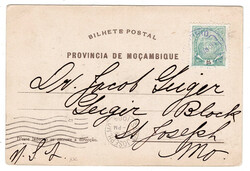 BILHETE POSTAL
PROVINCIA DE MOÇAMBIQUE
Dr. Jacob Geiger
Geiger Block
St Joseph
Mo.
U.S.A